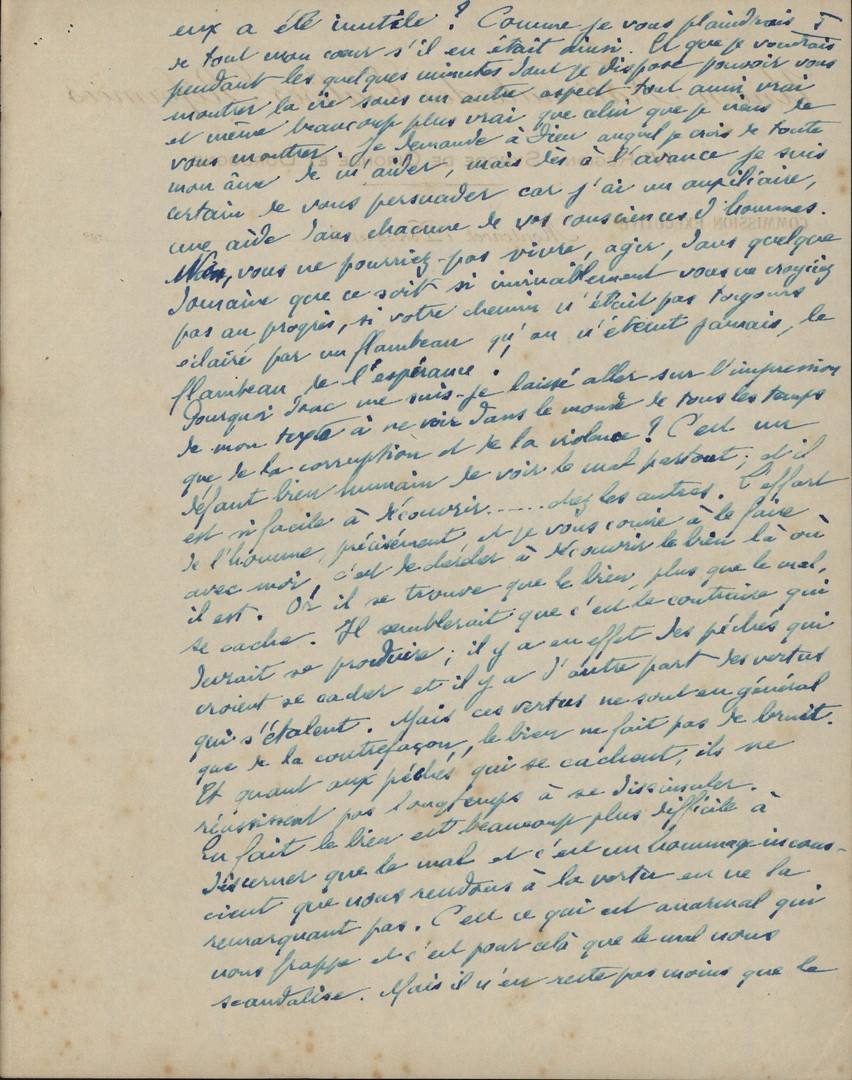 eux a été inutile ? Comme je vous plaindrais 5
de tout mon coeur s'il en était ainsi. Et que je voudrais
pendant les quelques minutes dont je dispose pouvoir vous
montrer la vie sous un autre aspect tout aussi vrai
et même beaucoup plus vrai que celui que je viens de
vous montrer. Je demande à Dieu auquel je crois de toute
mon âme de m'aider, mais dès à l'avance je suis
certain de vous persuader car j'ai un auxiliaire,
une aide dans chacune de vos consciences d'hommes.
Non, vous ne pourriez pas vivre, agir, dans quelque
domaine que ce soit si invinciblement vous ne croyiez
pas au progrès, si votre chemin n'était pas toujours
éclairé par un flambeau qu'on n'éteint jamais, le
flambeau de l'espérance.
Pourquoi donc me suis-je laissé aller sur l'impression
de mon texte à ne voir dans le monde de tous les temps
que de la corruption et de la violence ? C'est un
défaut bien humain de voir le mal partout ; et il
est si facile à découvrir ...... chez les autres. L'effort
de l'homme, précisément et je vous convie à le faire
avec moi, c'est de chercher à découvrir le bien là où
il est. Or il se trouve que le bien, plus que le mal,
se cache. Il semblerait que c'est le contraire qui
devrait se produire ; il y a en effet des péchés qui
croient se cacher et il y a d'autre part des vertus
qui s'étalent. Mais ces vertus ne sont en général
que de la contrefaçon, le bien ne fait pas de bruit.
Et quant aux péchés qui se cachent, ils ne
réussissent pas longtemps à se dissimuler.
En fait le bien est beaucoup plus difficile à
discerner que le mal et c'est un hommage incons-
cient que nous rendons à la vertu en ne la
remarquant pas. C'est ce qui est anormal qui
nous frappe et c'est pour celà que le mal nous
scandalise. Mais il n'en reste pas moins que le